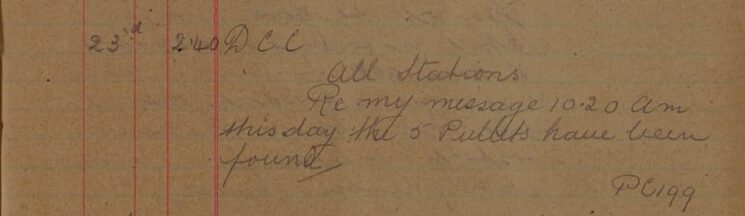 23rd 2.40 D C C
All Stations
Re my message 10.20 am
this day the 5 Pullets have been
found
PC 199